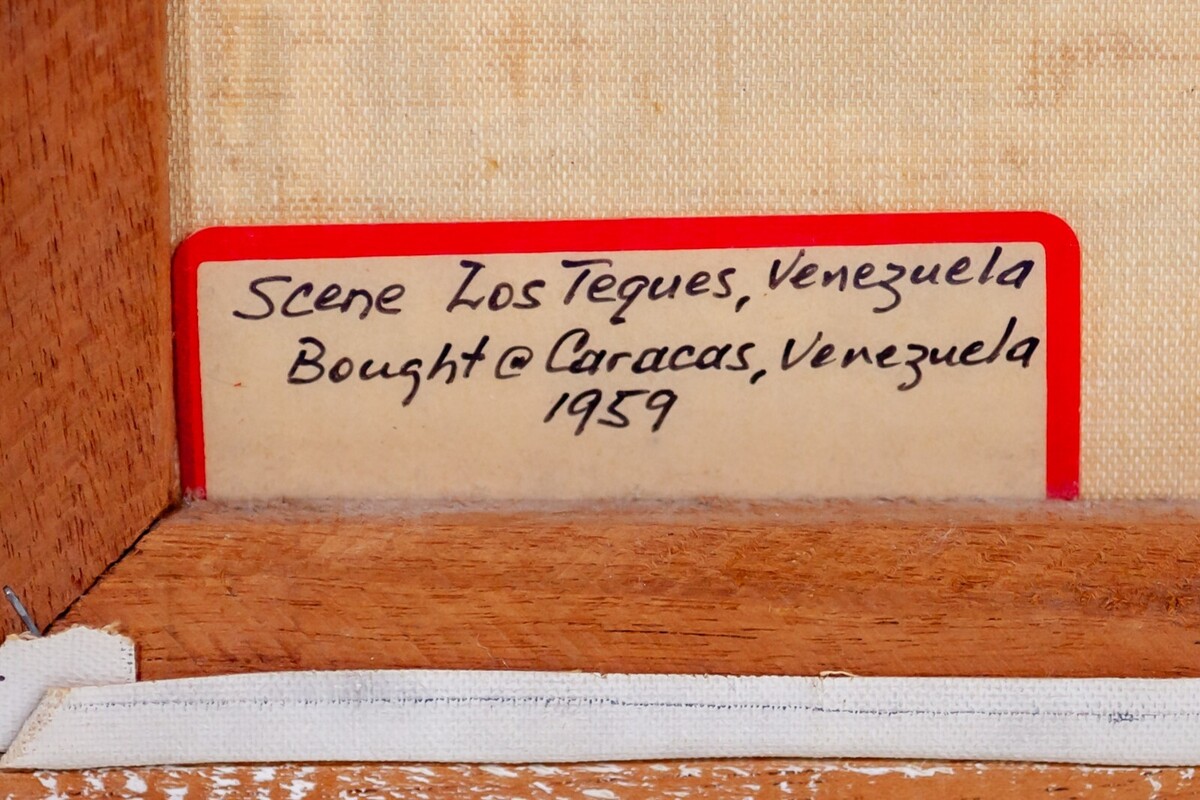 Scene Los Teques, Venezuela
Bought @ Caracas, Venezuela
1959